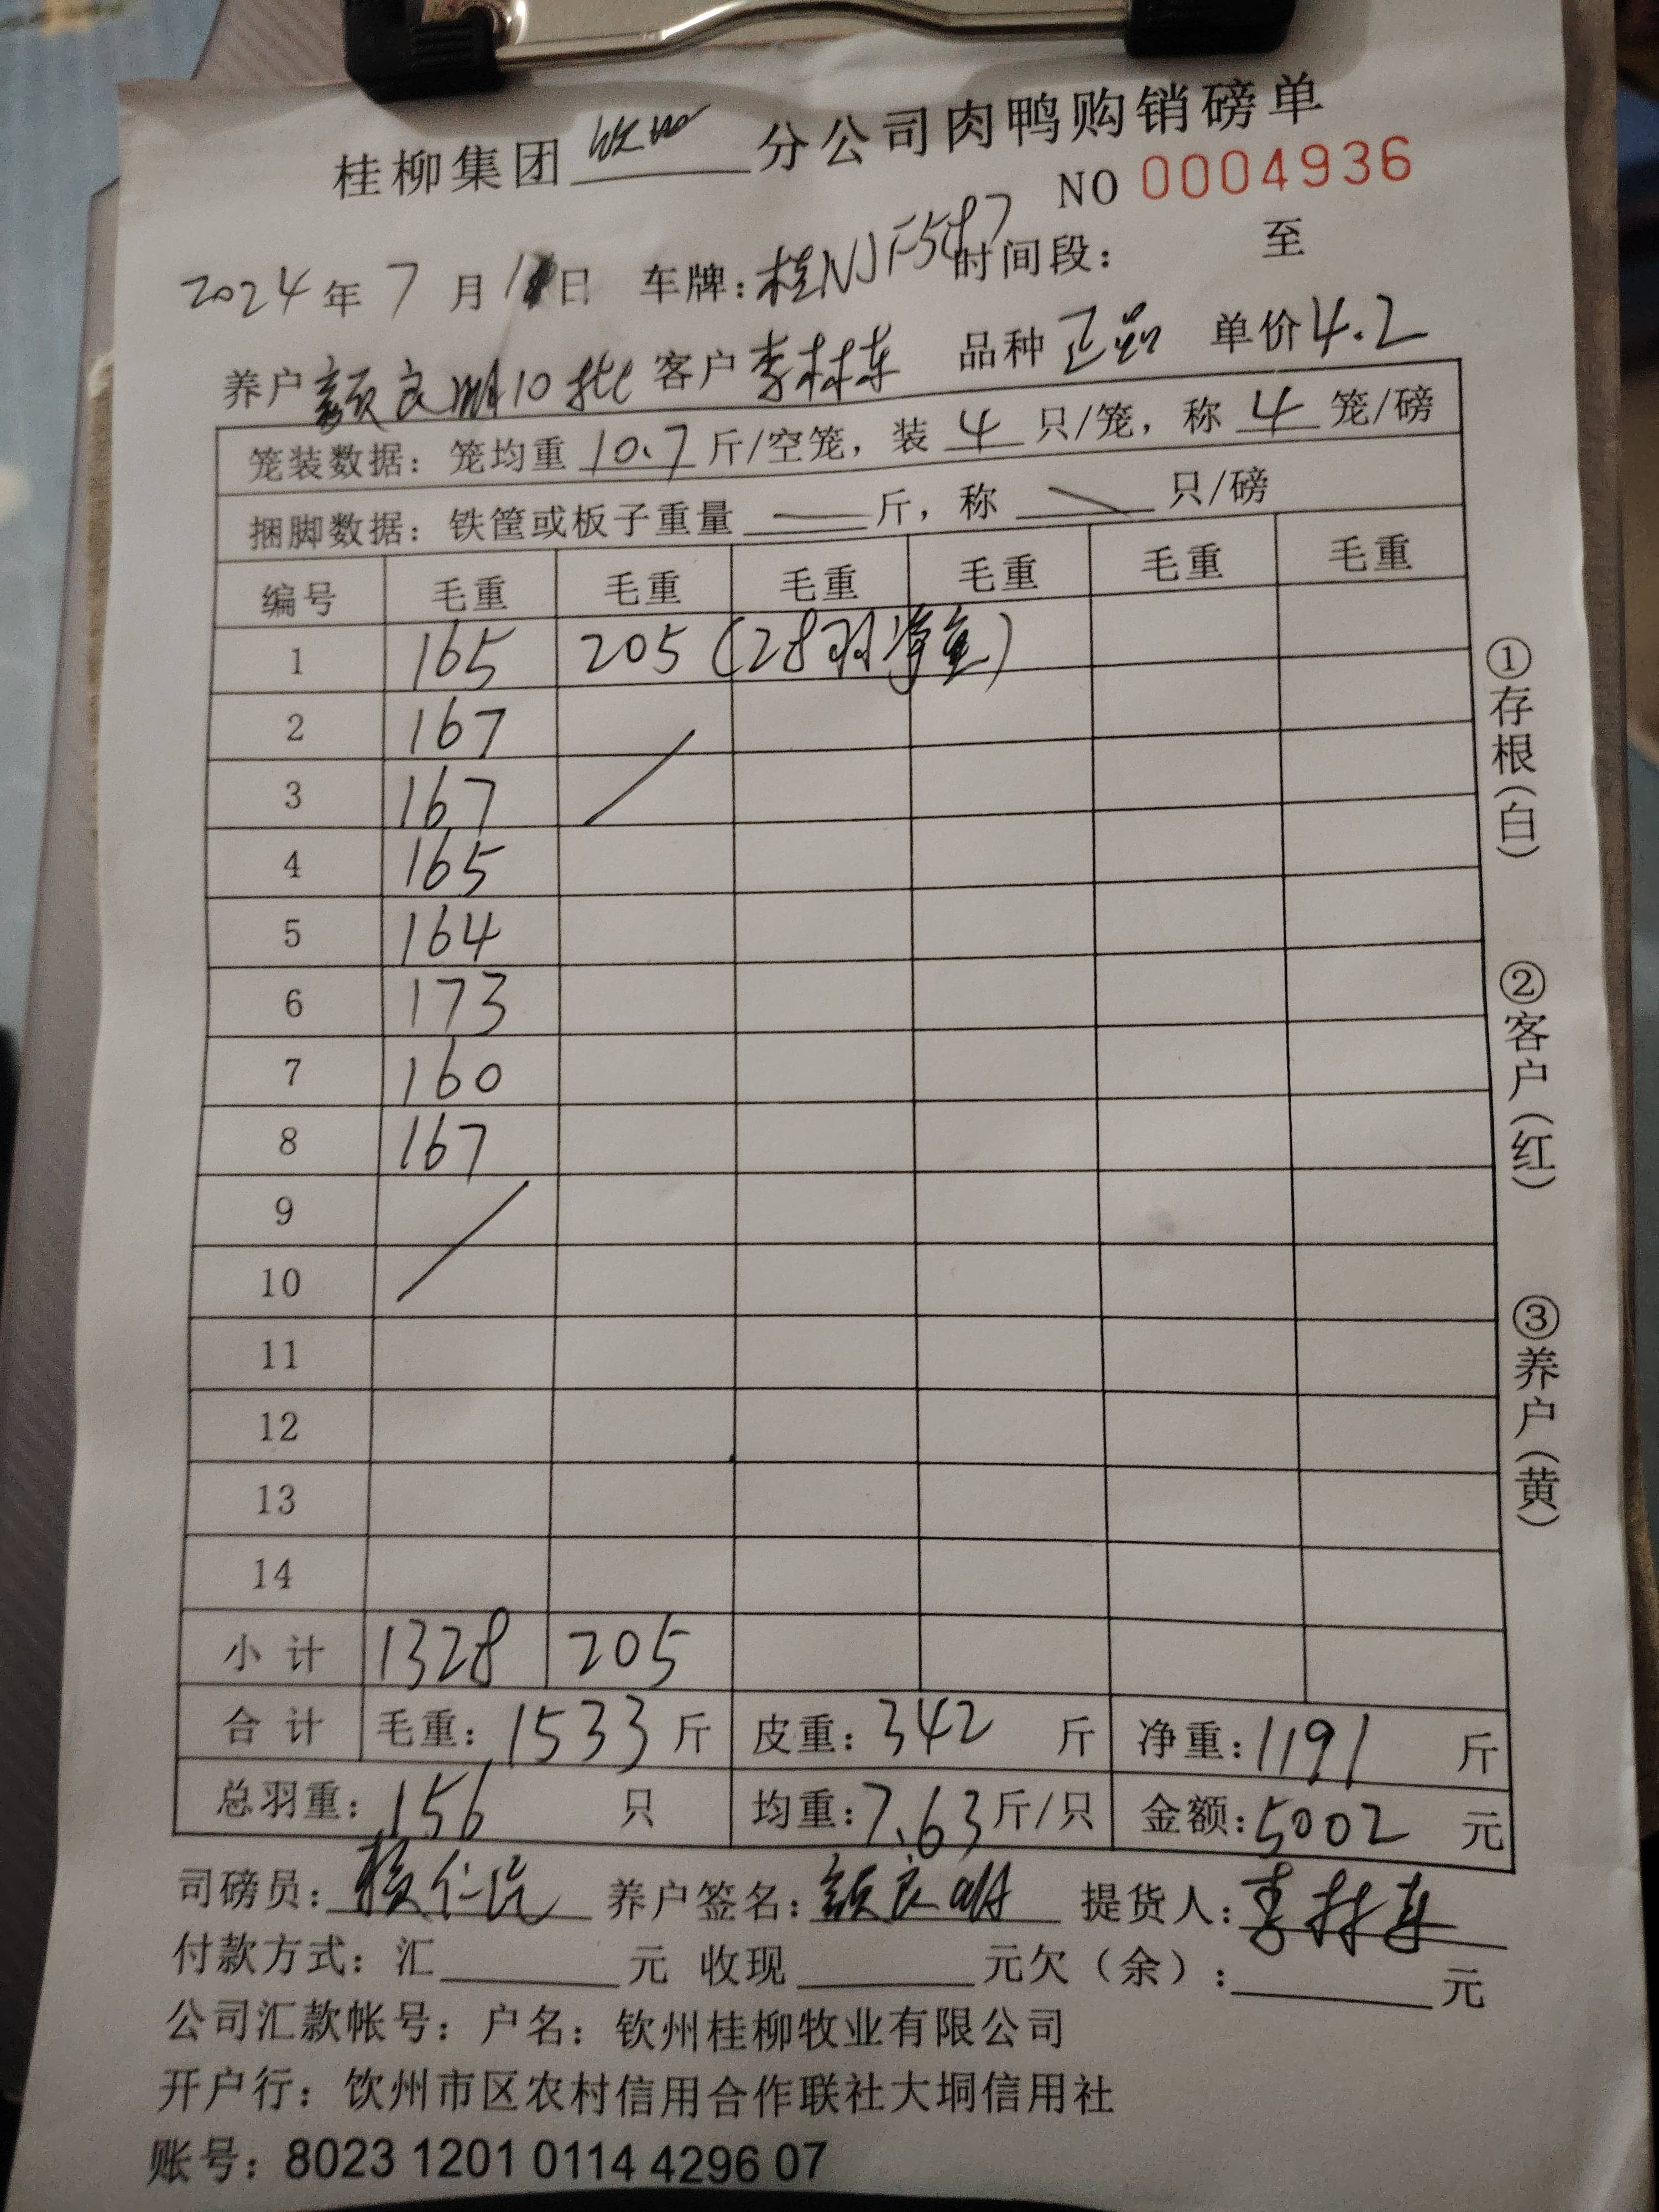 桂柳集团 钦州 分公司肉鸭购销磅单
NO 0004936
2024年7月1日 车牌：桂NJF597 时间段： 至
养户 颜良明10批 客户 李林东 品种 正品 单价 4.2
笼装数据：笼均重 10.7 斤/空笼，装 4 只/笼，称 4 笼/磅
捆脚数据：铁筐或板子重量 斤，称 只/磅
编号 毛重 毛重 毛重 毛重 毛重 毛重
1 165 205（28羽净重）
2 167
3 167
4 165
5 164
6 173
7 160
8 167
9
10
11
12
13
14
小计 1328 205
合计 毛重：1533 斤 皮重：342 斤 净重：1191 斤
总羽重：156 只 均重：7.63 斤/只 金额：5002 元
司磅员： 养户签名：颜良明 提货人：李林东
付款方式：汇 元 收现 元欠（余）： 元
公司汇款帐号：户名：钦州桂柳牧业有限公司
开户行：钦州市区农村信用合作联社大垌信用社
账号：8023 1201 0114 4296 07
①存根（白）
②客户（红）
③养户（黄）